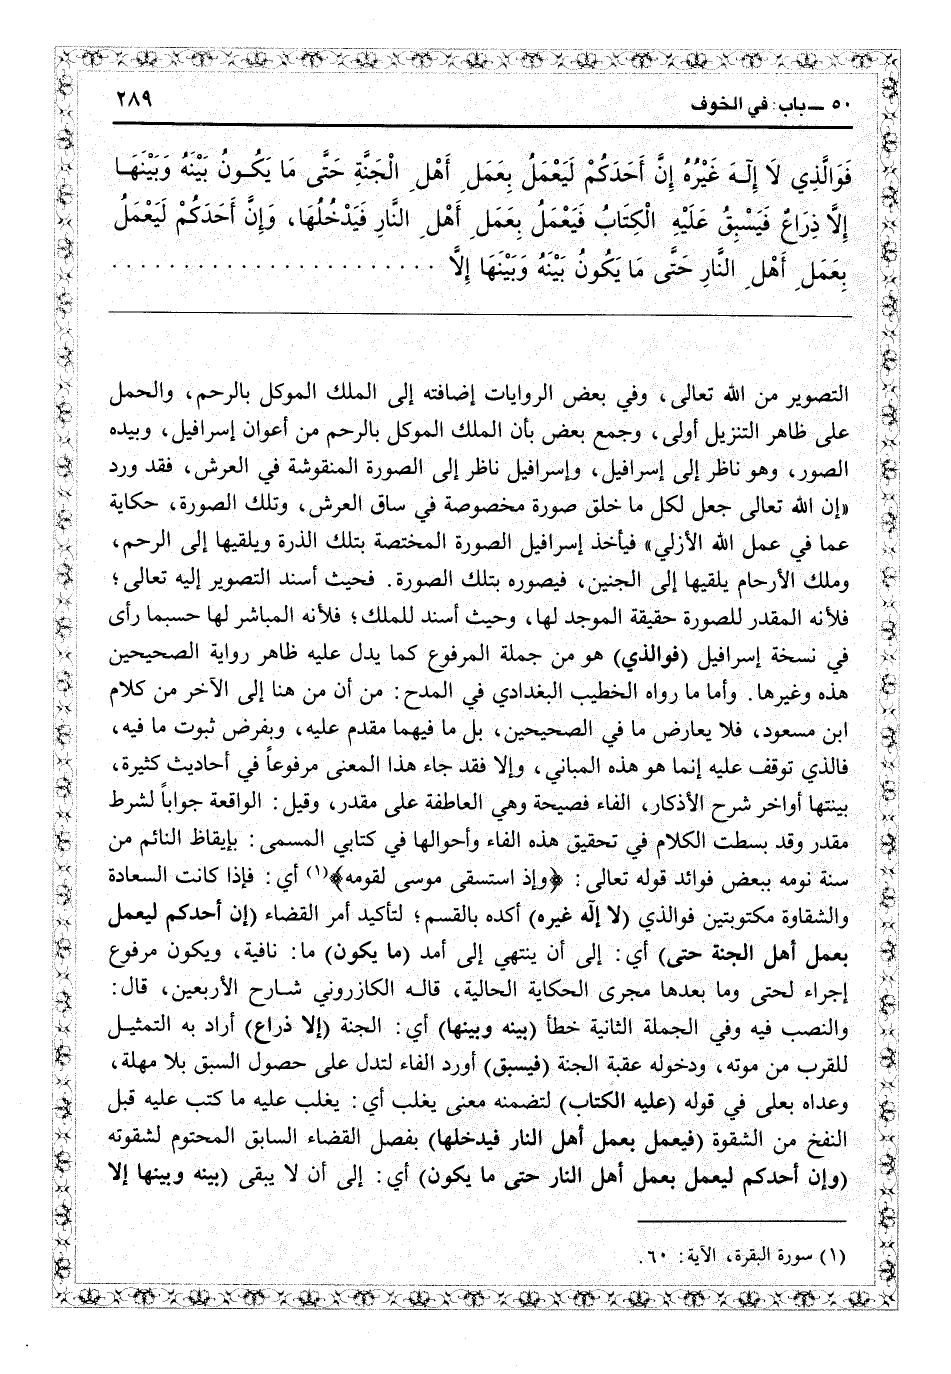 ٥٠ ــ باب: في الخوف ٢٨٩
فَوَالَّذِي لَا إِلَـهَ غَيْرُهُ إِنَّ أَحَدَكُمْ لَيَعْمَلُ بِعَمَلِ أَهْلِ الْجَنَّةِ حَتَّى مَا يَكُـونُ بَيْنَهُ وَبَيْنَهَـا
إِلَّا ذِرَاعٌ فَيَسْبِقُ عَلَيْهِ الْكِتَابُ فَيَعْمَلُ بِعَمَلِ أَهْلِ النَّارِ فَيَدْخُلُهَا، وَإِنَّ أَحَدَكُمْ لَيَعْمَلُ
بِعَمَلِ أَهْلِ النَّارِ حَتَّى مَا يَكُونُ بَيْنَهُ وَبَيْنَهَا إِلَّا . . . . . . . . . . . . . . . . . . . . . . .
التصوير من الله تعالى، وفي بعض الروايات إضافته إلى الملك الموكل بالرحم، والحمل
على ظاهر التنزيل أولى، وجمع بعض بأن الملك الموكل بالرحم من أعوان إسرافيل، وبيده
الصور، وهو ناظر إلى إسرافيل، وإسرافيل ناظر إلى الصورة المنقوشة في العرش، فقد ورد
«إن الله تعالى جعل لكل ما خلق صورة مخصوصة في ساق العرش، وتلك الصورة، حكاية
عما في عمل الله الأزلي» فيأخذ إسرافيل الصورة المختصة بتلك الذرة ويلقيها إلى الرحم،
وملك الأرحام يلقيها إلى الجنين، فيصوره بتلك الصورة. فحيث أسند التصوير إليه تعالى؛
فلأنه المقدر للصورة حقيقة الموجد لها، وحيث أسند للملك؛ فلأنه المباشر لها حسبما رأى
في نسخة إسرافيل (فوالذي) هو من جملة المرفوع كما يدل عليه ظاهر رواية الصحيحين
هذه وغيرها. وأما ما رواه الخطيب البغدادي في المدح: من أن من هنا إلى الآخر من كلام
ابن مسعود، فلا يعارض ما في الصحيحين، بل ما فيهما مقدم عليه، وبفرض ثبوت ما فيه،
فالذي توقف عليه إنما هو هذه المباني، وإلا فقد جاء هذا المعنى مرفوعاً في أحاديث كثيرة،
بينتها أواخر شرح الأذكار، الفاء فصيحة وهي العاطفة على مقدر، وقيل: الواقعة جواباً لشرط
مقدر وقد بسطت الكلام في تحقيق هذه الفاء وأحوالها في كتابي المسمى: بإيقاظ النائم من
سنة نومه ببعض فوائد قوله تعالى: ﴿وإذ استسقى موسى لقومه﴾(١) أي: فإذا كانت السعادة
والشقاوة مكتوبتين فوالذي (لا إله غيره) أكده بالقسم؛ لتأكيد أمر القضاء (إن أحدكم ليعمل
بعمل أهل الجنة حتى) أي: إلى أن ينتهي إلى أمد (ما يكون) ما: نافية، ويكون مرفوع
إجراء لحتى وما بعدها مجرى الحكاية الحالية، قاله الكازروني شارح الأربعين، قال:
والنصب فيه وفي الجملة الثانية خطأ (بينه وبينها) أي: الجنة (إلا ذراع) أراد به التمثيل
للقرب من موته، ودخوله عقبة الجنة (فيسبق) أورد الفاء لتدل على حصول السبق بلا مهلة،
وعداه بعلى في قوله (عليه الكتاب) لتضمنه معنى يغلب أي: يغلب عليه ما كتب عليه قبل
النفخ من الشقوة (فيعمل بعمل أهل النار فيدخلها) بفصل القضاء السابق المحتوم لشقوته
(وإن أحدكم ليعمل بعمل أهل النار حتى ما يكون) أي: إلى أن لا يبقى (بينه وبينها إلا
(١) سورة البقرة، الآية: ٦٠.